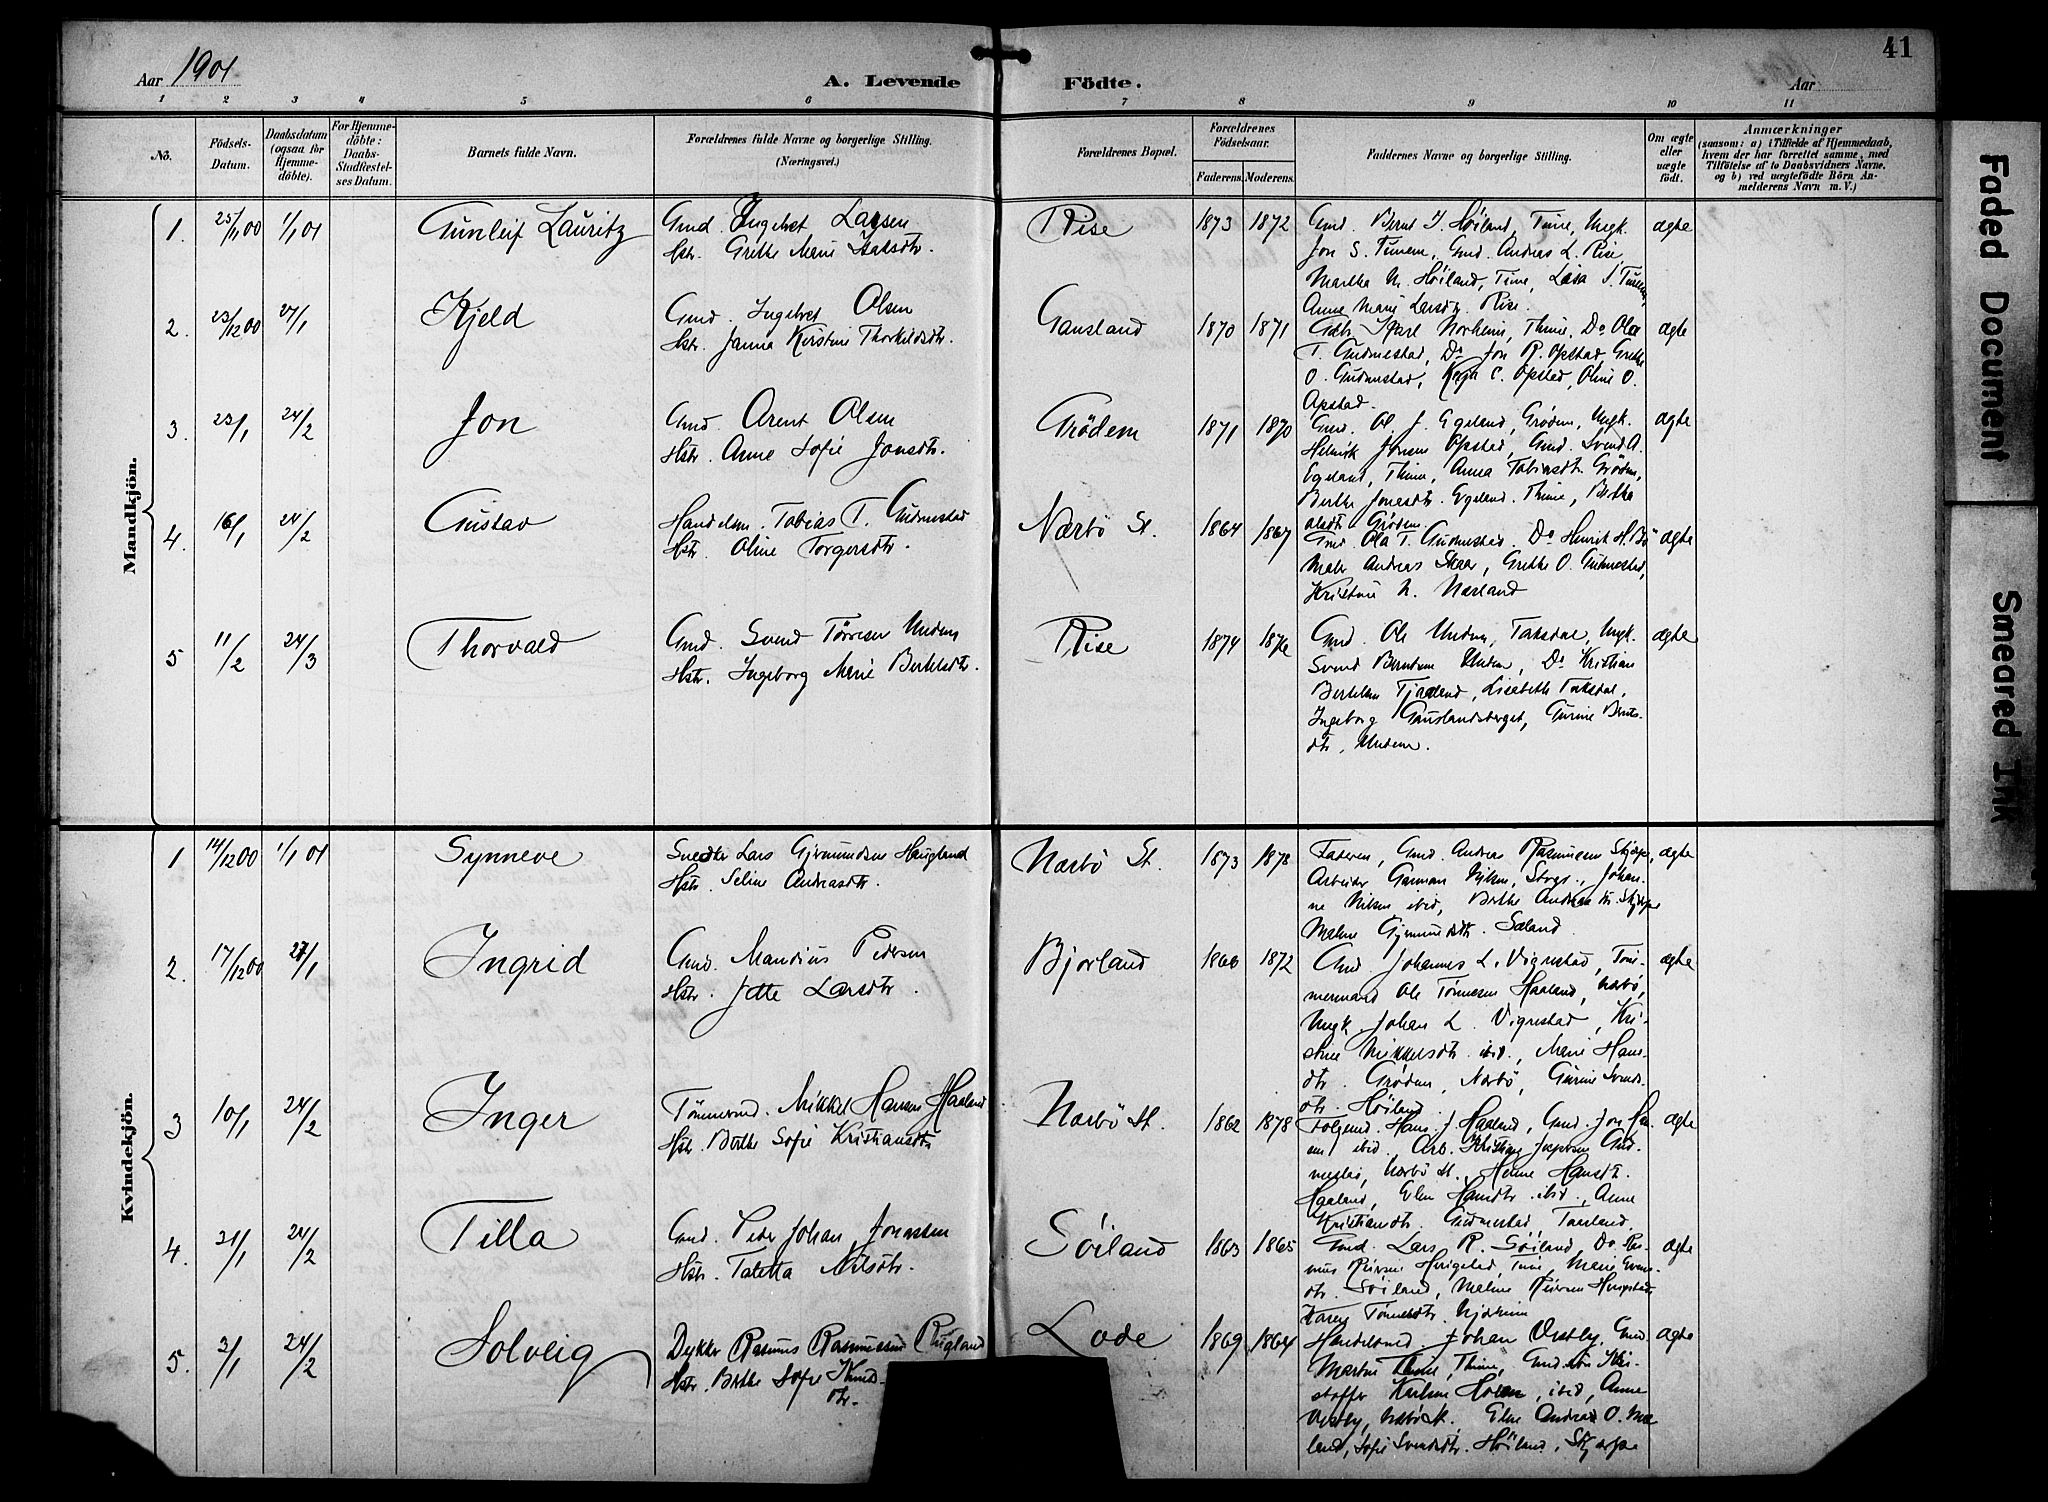 Aar 1901
A. Levende Födte.
Aar
41
1 2 3 4 5 6 7 8 9 10 11
No.
Födsels-Datum.
Daabsdatum (ogsaa for Hjemme-döbte).
For Hjemme-döbte: Daabs-Stadfæstel-ses Datum.
Barnets fulde Navn.
Forældrenes fulde Navne og borgerlige Stilling. (Næringsvei.)
Forældrenes Bopæl.
Forældrenes Födselsaar.
Faderens. Moderens.
Faddernes Navne og borgerlige Stilling.
Om ægte eller uægte födt.
Anmærkninger
(saasom: a) i Tilfælde af Hjemmedaab, hvem der har forrettet samme, med Tilföielse af to Daabsvidners Navne, og b) ved uægtefödte Börn An-melderens Navn m. V.)
Mandkjön.
1. 25/11 00 1/1 01 Gunleif Lauritz
Gmd. Ingebret Larsen
Hstr. Grethe Marie Isaksdtr.
Rise 1873 1872
Gmd. Bernt J. Höiland, Time, Ungk.
Jon S. Tunem, Gmd. Andreas L. Rise
Martha M. Höiland, Time,
Anne Marie Larsdtr. Rise.
ægte
2. 23/12 00 27/1 Kjeld
Gmd. Ingebret Olsen
Hstr. Janna Kirstine Thorkildsdtr.
Gausland 1870 1871
Norheim, Thime, Do Ola
T. Gudmestad, Do Jon R. Opstad, Grethe
O. Gudmestad, C. Opsted, Oline O.
Opstad.
ægte
3. 23/1 24/2 Jon
Gmd. Arent Olsen
Hstr. Anne Sofie Jonsdtr.
Grödem 1871 1870
Gmd. Ol. J. Egeland, Grödem, Ungk.
Henrik Jonsen Opsted, Gmd. Svend A.
Egeland, Thime, Anna Tobiasdtr. Grödem,
Berthe Jonasdtr. Egeland. Thime, Berthe
Olsdtr. Grödem.
ægte
4. 16/1 24/2 Gustav
Handelsm. Tobias T. Gudmestad
Hstr. Oline Torgersdtr.
Nærbö St. 1864 1867
Gmd. Ola T. Gudmestad. Do Henrik H. Bö
Maler Andreas Skaar, Grethe O. Gudmestad,
Kristine N. Nærland
ægte
5 11/2 24/3 Thorvald
Gmd. Svend Törresen Undem
Hstr. Ingeborg Marie Bertelsdtr.
Rise 1874 1876
Gmd. Ole Undem, Taksdal, Ungk.
Svend Berntsen Undem, Do Kristian
Bertelsen Tjaaland, Lisabeth Taksdal,
Ingeborg Gauslandsberget, Gurine Bernts-
dtr, Undem.
ægte
Kvindekjön.
1 14/12 00 1/1 01 Synneve
Snedker Lars Gjermundsen Haugland
Hstr. Seline Andreasdtr.
Nærbö St. 1873 1878
Faderen, Gmd. Andreas Rasmussen Skjærpe,
Arbeider Garman Nilsen, Stvgr., Johan-
ne Nilsen ibid, Berthe Andreasdtr. Skjærpe
Malene Gjermundsdtr.
ægte
2. 17/12 00 27/1 Ingrid
Gmd. Mandius Pedersen
Hstr. Jette Larsdtr.
Bjorland 1866 1872
Gmd. Johannes L. Vigrestad, Töm-
mermand Ole Tönnesen Haaland, Nærbö,
Ungk. Johan L. Vigrestad, Kri-
stine Mikkelsdtr. ibid., Marie Hans-
dtr. Grödem, Nærbö, Gurine Svends-
dtr. Höiland.
ægte
3 10/1 24/2 Inger
Tömmermd. Mikkel Hansen Haaland
Hstr. Berthe Sofie Kristiansdtr.
Nærbö St. 1862 1878
Folgemd. Hans J. Haaland, Gmd. Jon Han-
sen ibid. Arb. Kristian Jespersen Gud-
mestad, Nærbö St., Helene Hansdtr.
Haaland, Elen Hansdtr. ibid., Anne
Kristiansdtr. Gudmestad,
ægte
4. 21/1 24/2 Tilla
Gmd. Peder Johan Jonassen
Hstr. Taletta Nilsdtr.
Söiland 1863 1865
Gmd. Lars R. Söiland, Do Ras-
mus Time, Marie Svens-
dtr. Söiland, Malene
Karen Tönnesdtr. Njærheim
ægte
5. 2/1 24/2 Solveig
Dykker Rasmus Rasmussen Rugland
Hstr. Berthe Sofie Knuds-
dtr.
Lode 1869 1864
Handelsmd. Johan Vestly, Gmd.
Martin Time, Thime, Gmd.sön Kri-
stoffer Karlsen Hölen, ibid, Anne
Vestly, Nærbö St. Elen Andrea O. Mæ-
land, Sofie Svendsdtr. Höiland. Skjærpe
ægte
Faded Document
Smeared Ink